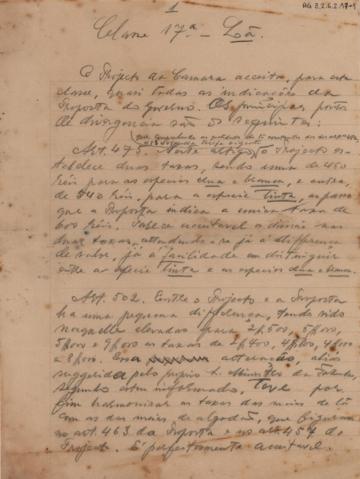 1
AG 3.2.6.2.17-1
Classe 17ª - Lã.
O Projecto da Camara acceita, para esta
classe, quasi todas as indicações da
Proposta do Governo. Os principaes pontos
de divergencia são os seguintes:
Art. 475 - O Projecto es-
tabelece duas taxas, sendo uma de 450
réis para as especies crua e branca, e outra,
de 540 réis, para a especie tinta, ao passo
que a Proposta indica a unica taxa de
600 réis. Parece acceitavel a divisão nas
duas taxas, attendendo-se já á differença
de valor, já á facilidade em distinguir
entre a especie tinta e as especies crua e branca.
Art. 502. Entre o Projecto e a Proposta
ha uma pequena differença, tendo sido
naquelle elevadas para 2$500, 5$000,
5$000 e 9$000 as taxas de 2$400, 4$800, 4$000
e 8$000. Essa alteração, aliás
suggerida pelo proprio Ministro da Fazenda,
segundo estou informado, teve por
fim harmonisar as taxas das meias de lã
com as das meias de algodão, que figuram
no art. 463 da Proposta e no art. 457 do
Projecto. É perfeitamente acceitavel.